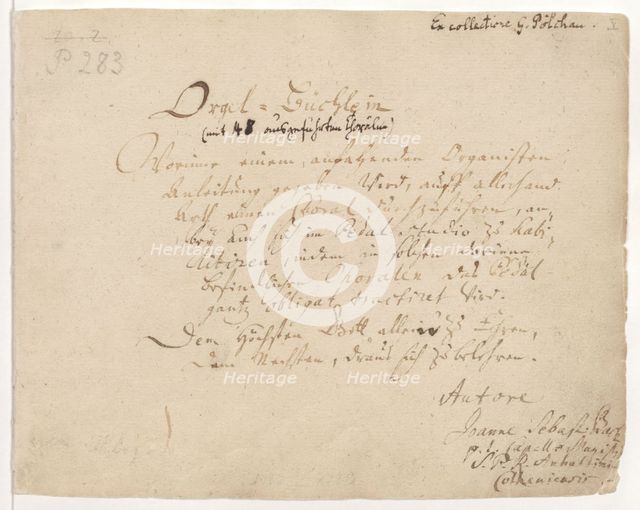 Ex collectione G. Pölchau.
P 283
Orgel-Büchlein
(mit 48 ausgeführten Chorälen)
Worinne einem anfahenden Organisten
Anleitung gegeben wird, auff allerhand
Arth einen Choral durchzuführen, an-
bey auch sich im Pedal studio zu habi-
litiren, indem in solchen darinne
befindlichen Choralen das Pedal
gantz obligat tractiret wird.
Dem Höchsten Gott allein zu Ehren,
Dem Nechsten, draus sich zu belehren.
Autore
Joanne Sebast. Bach
p. t. Capellæ Magistri
S. P. R. Anhaltini-
Cotheniensis.
Heritage
Heritage
Heritage
Heritage
Heritage
Heritage
Heritage
Heritage
©